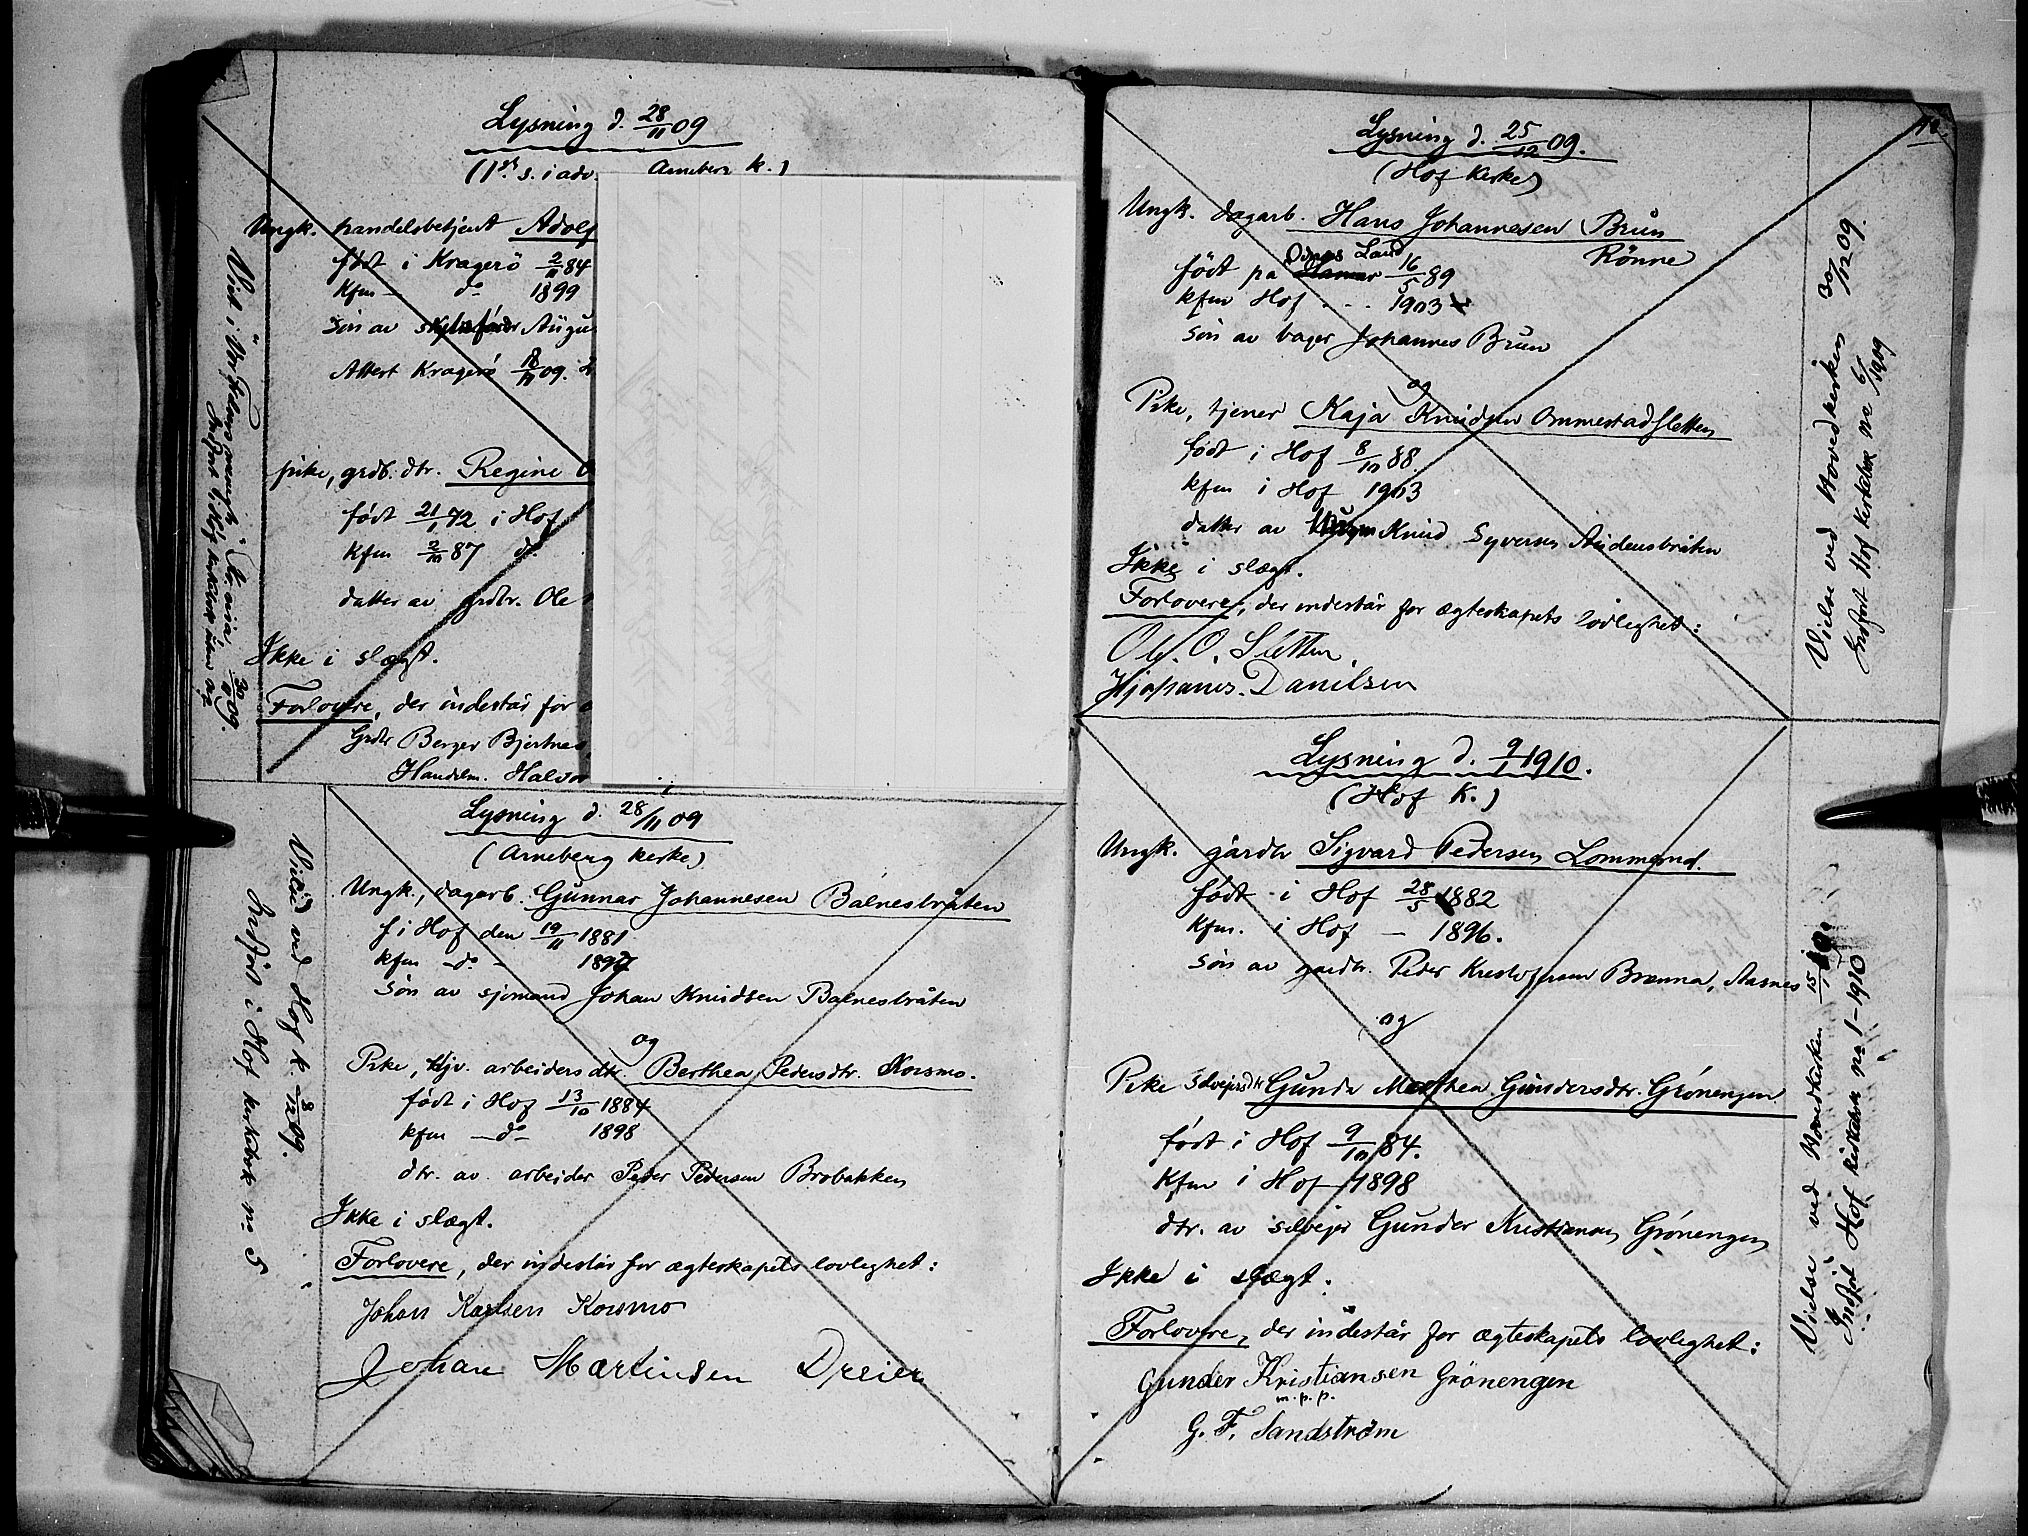 Lysning d. 28/11 09
(1ste s. i adv. Arneberg k.)
Ungk. handelsbetjent Adolf
født i Kragerö 2/11 84
kfm — do 1899
sön av Augu
Attest Kragerö 09.
pike, grdb. dtr. Regine
født 21/1 72 i Hof
kfm 2/10 87 do
datter av grdbr. Ole
Ikke i slægt.
Forlovere, der indestår for
Grdbr Berger Bjertnes
Handelsm. Halvor
Viet i Vor Frelsers menighet, Kr.ania, 30/11 09.
Indført i Hof kirkebok uten nr
Lysning d. 28/11 09
(Arneberg kirke)
Ungk., dagarb. Gunnar Johannesen Balnesbråten
f i Hof den 19/11 1881
kfm — do — 1897
Sön av sjömand Johan Knudsen Balnesbråten
og
Pike, arbeidersdtr. Berthea Pedersdtr. Korsmo.
født i Hof 13/10 1884
kfm — do — 1898
dtr. av arbeider Peder Pedersen Brobakken
Ikke i slægt.
Forlovere, der indestår for ægteskapets lovlighet:
Johan Karlsen Korsmo
Johan Martinsen Dreier
Vielse ved Hof k. 8/12 09.
Indført i Hof kirkebok no 5
42.
Lysning d. 25/12 09.
(Hof kirke)
Ungk. dagarb. Hans Johannesen Brun
Rönne
Odnes Land
født på Hamar 16/5 89
kfm Hof . . . 1903
sön av bager Johannes Brun
og
Pike, tjener Kaja Knudsen Ommestadsletten
født i Hof 8/10 88.
kfm i Hof 1903
datter av Knud Syversen Audensbråten
Ikke i slægt.
Forlovere, der indestår for ægteskapets lovlighet:
Ole. O. Sletten.
Hjohannes. Danilsen
Vielse ved Hovedkirken 30/12 09.
Indført Hof kirkebok no 6/1909
Lysning d. 9/1 1910.
(Hof k.)
Ungk. gårdbr Sigvard Pedersen Lommend.
født i Hof 28/5 1882
kfm. i Hof — 1896.
sön av gardbr. Peder Kristofersen Brenna, Aasnes
og
Pike selveiersdtr Gunda Marthea Gundersdtr. Grönengen
født i Hof 9/10 84.
kfm i Hof 1898
dtr. av selveier Gunder Kristiansen Grönengen
Ikke i slægt.
Forlovere, der indestår for ægteskapets lovlighet:
Gunder Kristiansen Grönengen
m.p.p.
G. F. Sandström
Vielse ved Hovedkirken 15/1
Indført Hof kirkebok no 1 – 1910